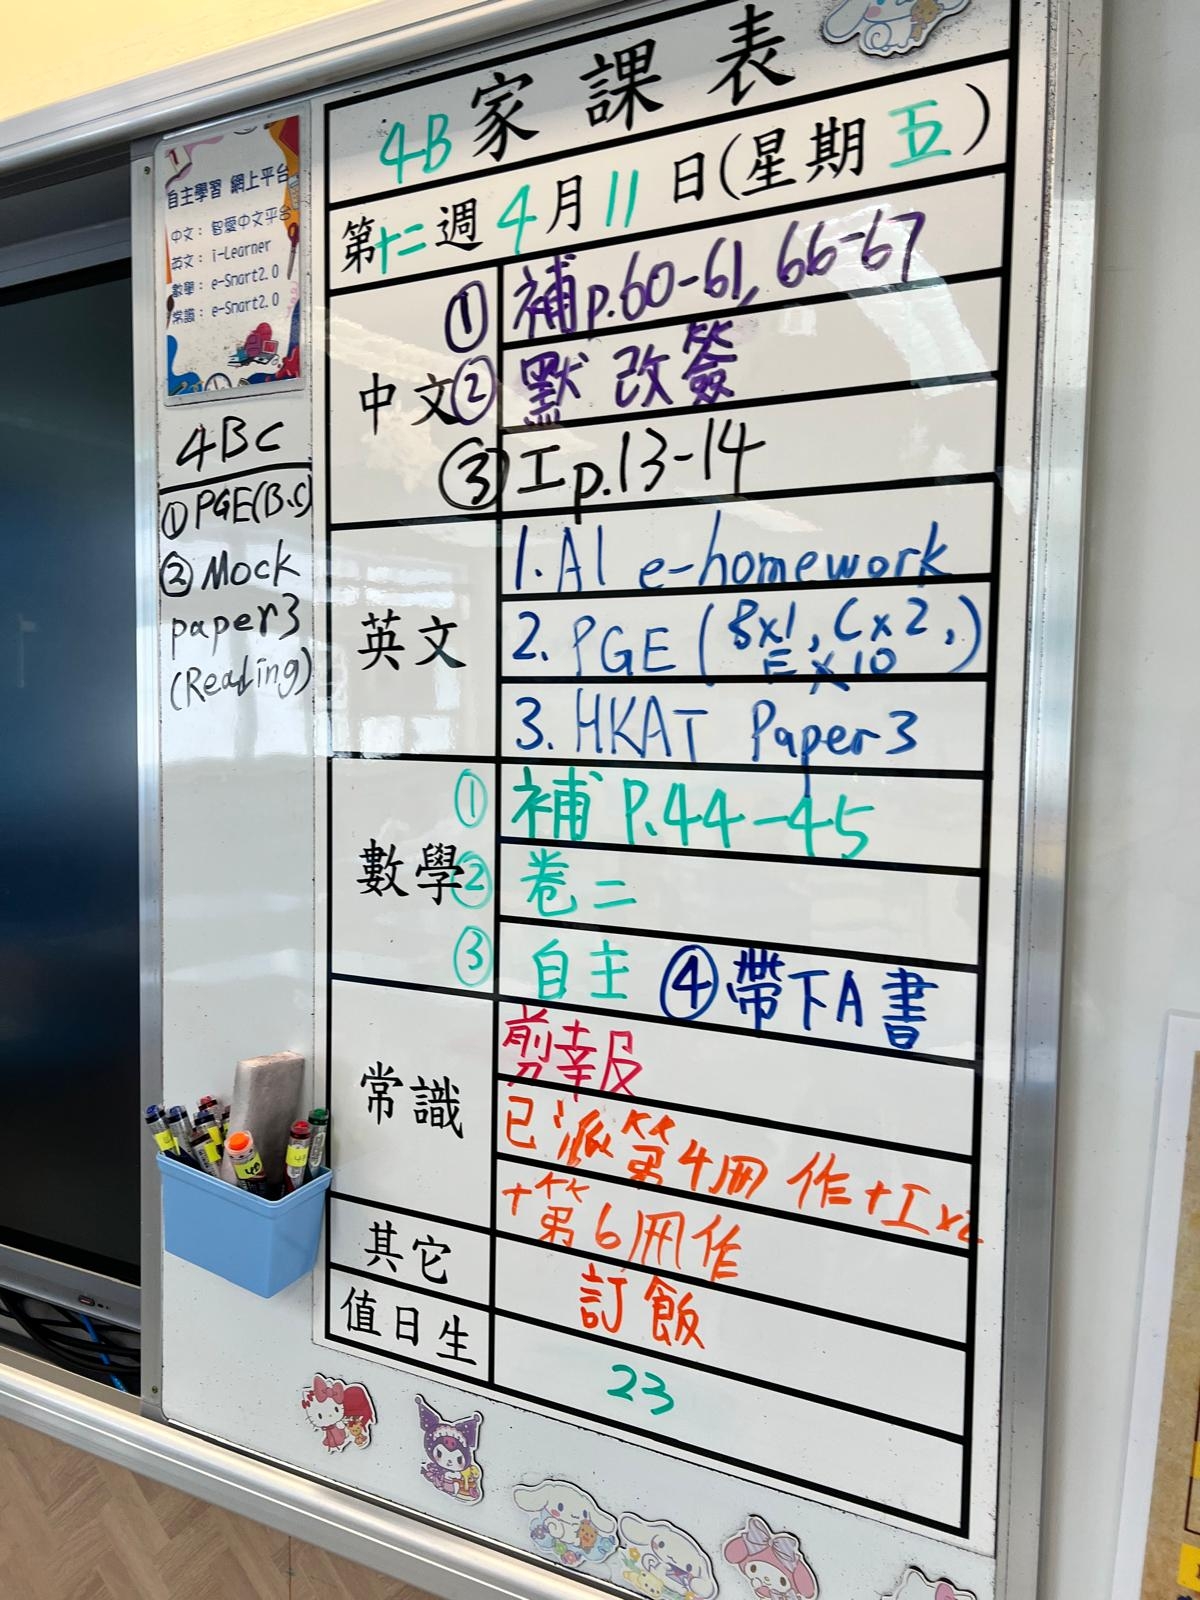 4B家課表
第十二週4月11日(星期五)
自主學習 網上平台
中文：智愛中文平台
英文：i-Learner
數學：e-Smart2.0
常識：e-Smart2.0
4BC
①PGE(B,C)
②Mock
paper3
(Reading)
中文
① 補p.60-61, 66-67
② 默 改簽
③ 工p.13-14
英文
1. A1 e-homework
2. PGE (Bx1, Cx2, Ex10)
3. HKAT Paper3
數學
① 補 P.44-45
② 卷二
③ 自主 ④帶下A書
常識
剪報
已派第4冊 作+工x2
+第6冊作
其它
訂飯
值日生
23